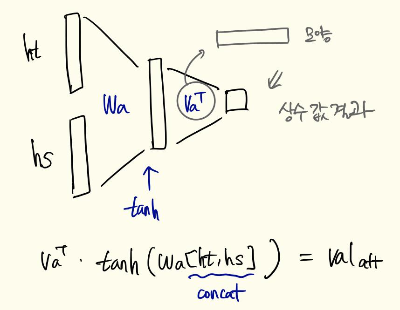 ht
hs
Wa
tanh
Va^T
모양
상수 값 결과
Va^T · tanh(Wa[ht;hs]) = val_att
concat